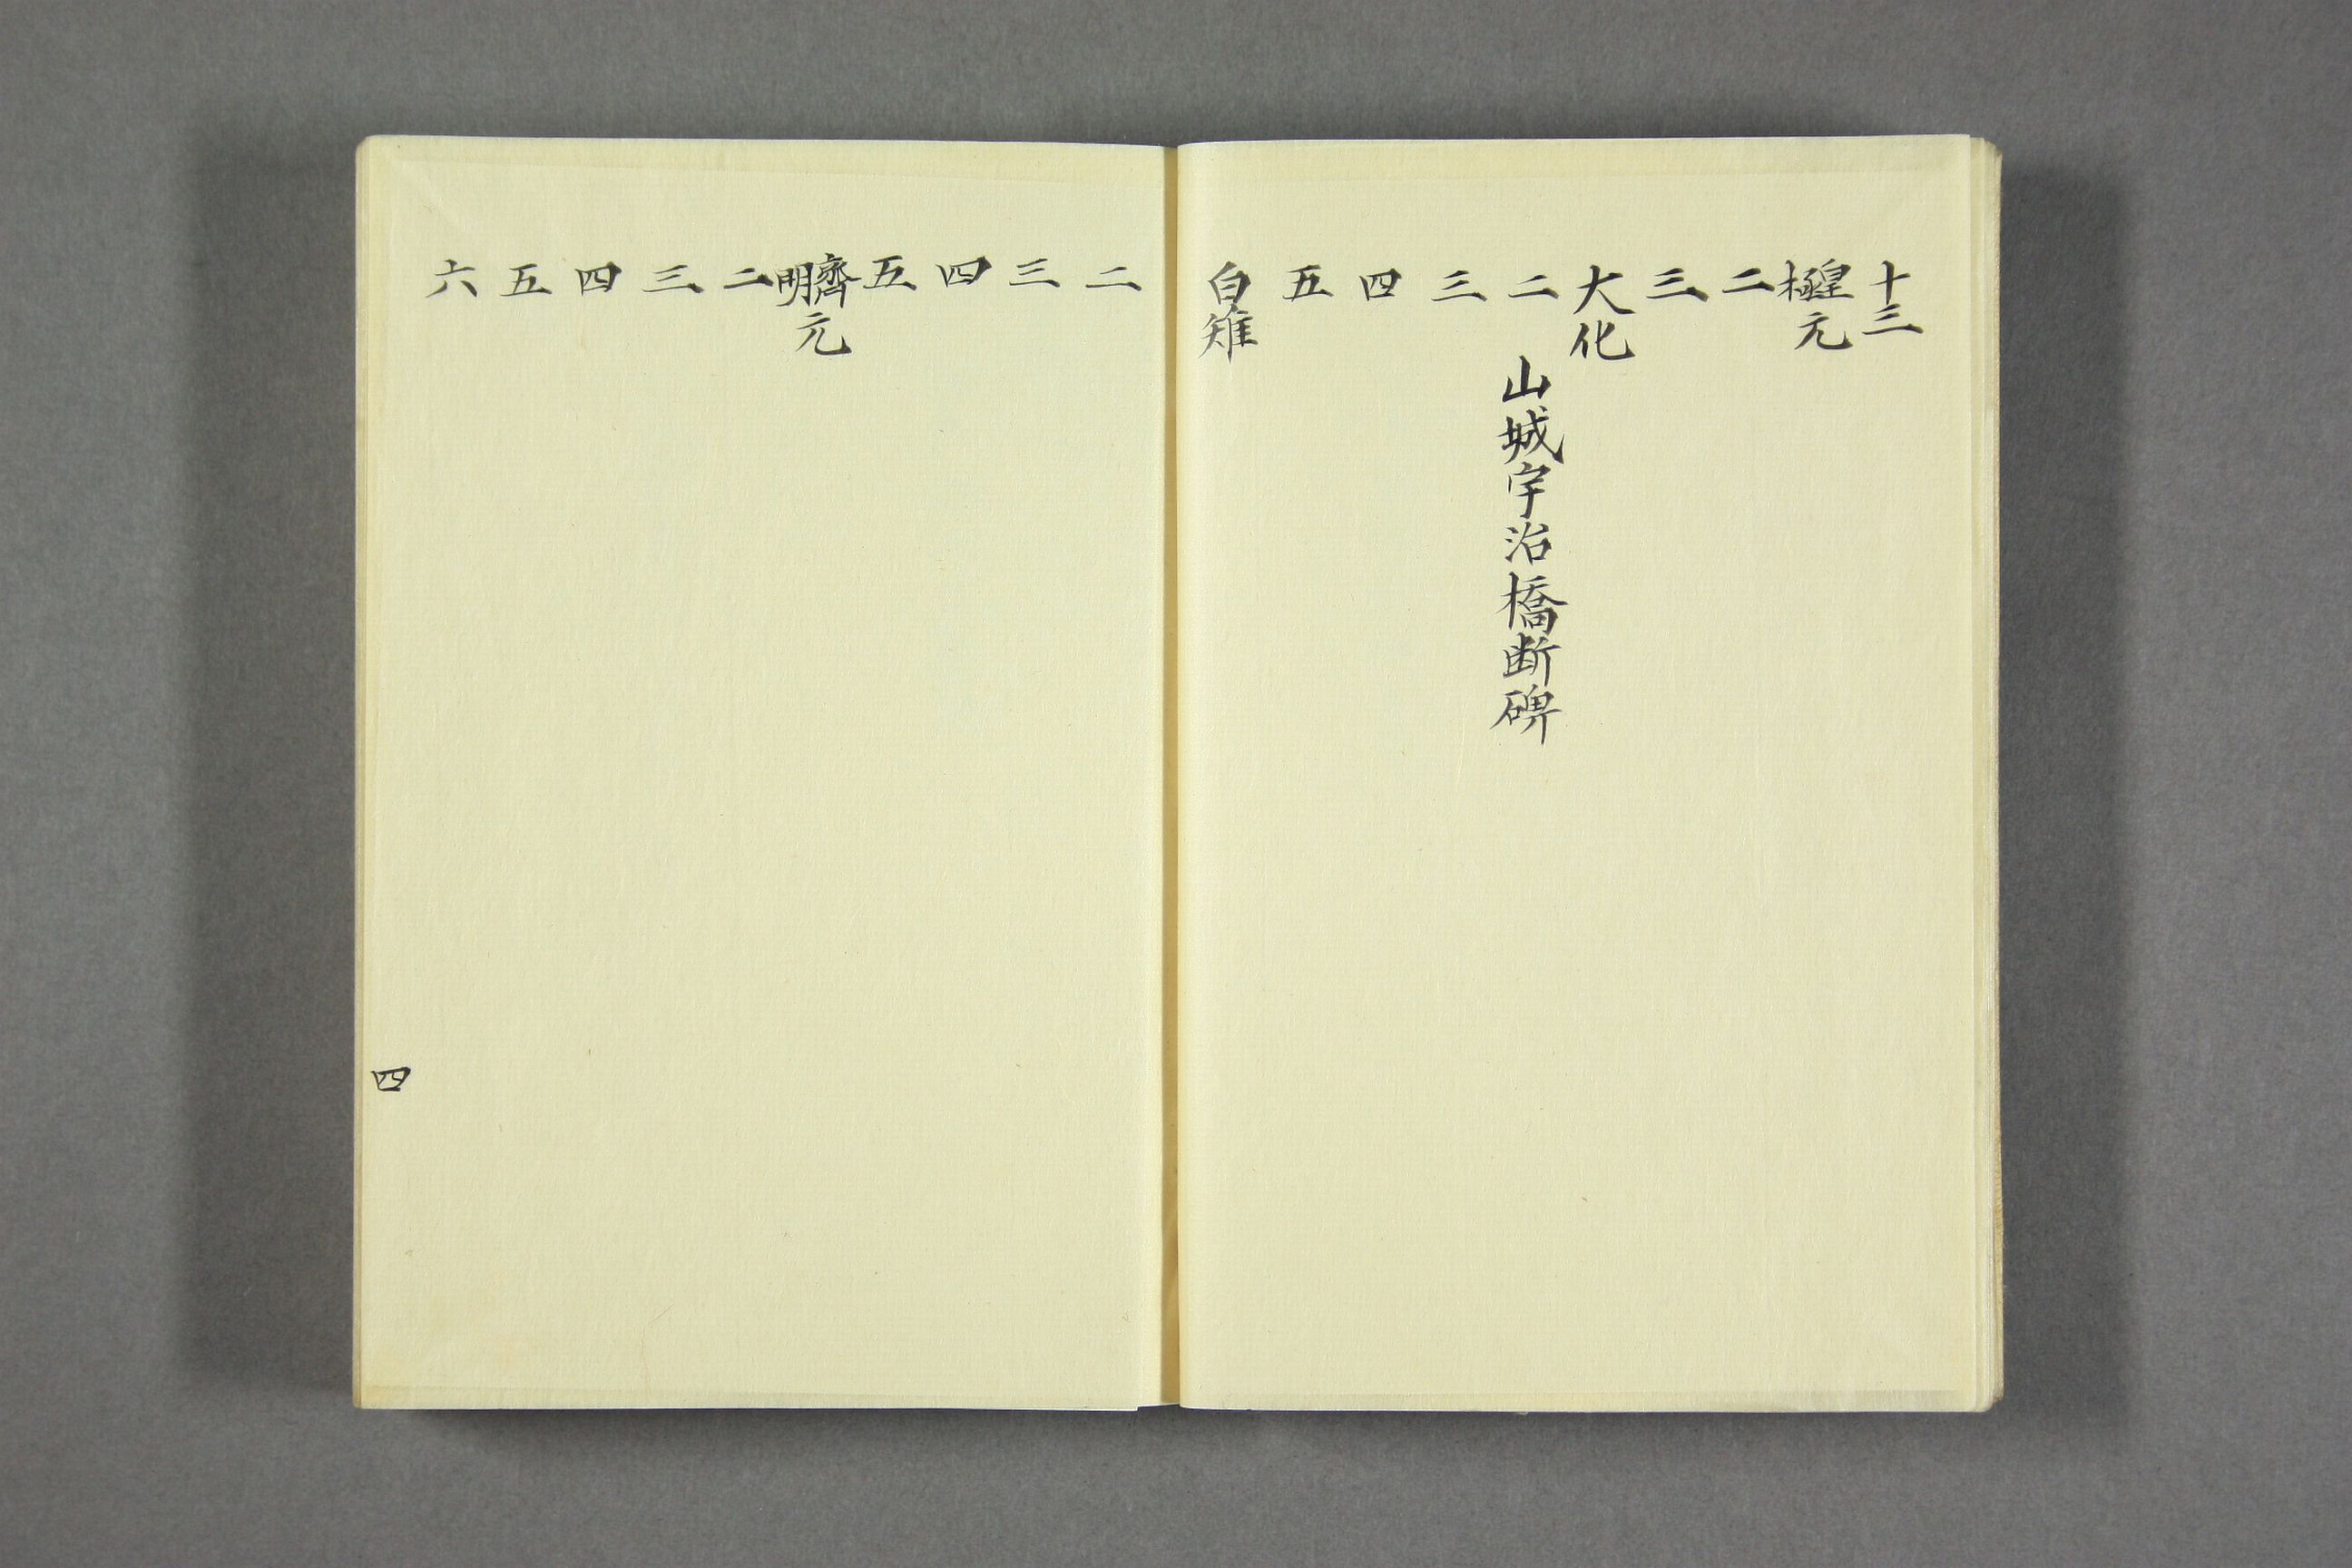 十三
皇極元
二
三
大化
二 山城宇治橋断碑
三
四
五
白雉
二
三
四
五
齊明元
二
三
四
五
六
四